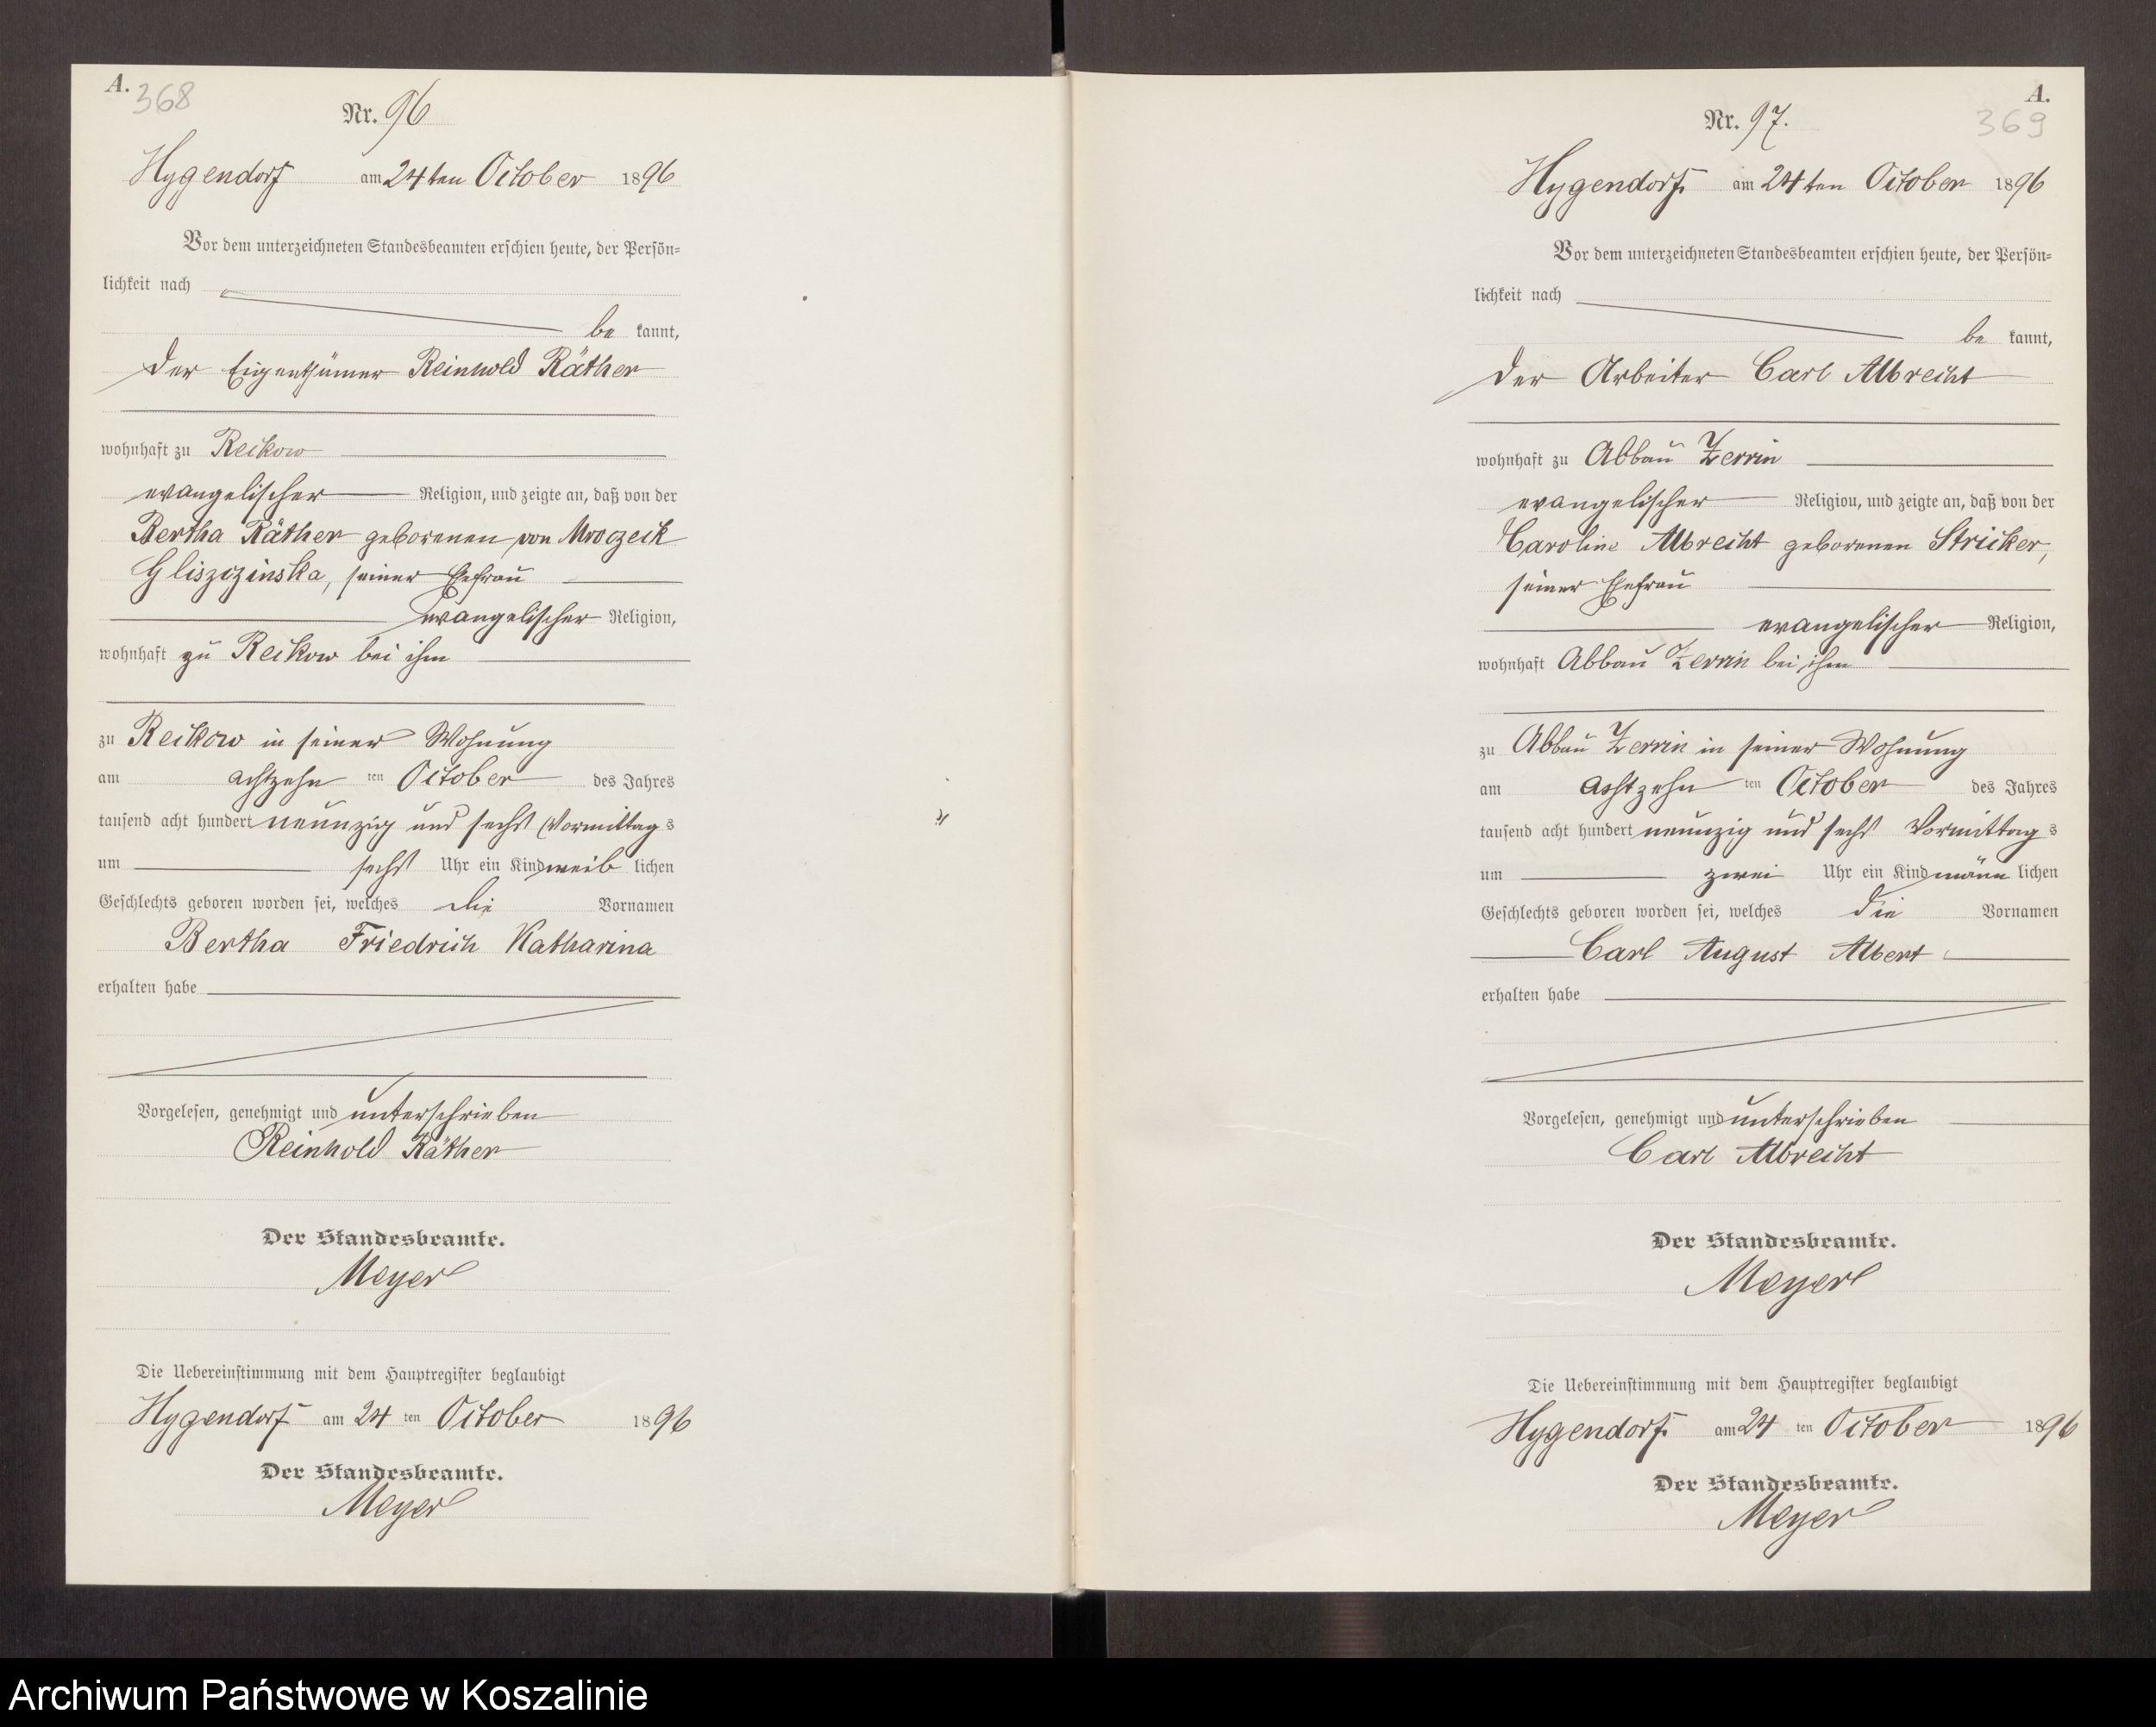 A.
368
Nr. 96
Hygendorf am 24ten October 1896
Vor dem unterzeichneten Standesbeamten erschien heute, der Persön=
lichkeit nach
be kannt,
der Eigenthümer Reinhold Räther
wohnhaft zu Reikow
evangelischer Religion, und zeigte an, daß von der
Bertha Räther geborenen von Mroczeck
Gliszczinska, seiner Ehefrau
evangelischer Religion,
wohnhaft zu Reikow bei ihm
zu Reikow in seiner Wohnung
am achtzehn ten October des Jahres
tausend acht hundert neunzig und sechs Vormittag s
um sechs Uhr ein Kind weib lichen
Geschlechts geboren worden sei, welches die Vornamen
Bertha Friedrich Katharina
erhalten habe
Vorgelesen, genehmigt und unterschrieben
Reinhold Räther
Der Standesbeamte.
Meyer
Die Uebereinstimmung mit dem Hauptregister beglaubigt
Hygendorf am 24 ten October 1896
Der Standesbeamte.
Meyer
A.
369
Nr. 97.
Hygendorf am 24ten October 1896
Vor dem unterzeichneten Standesbeamten erschien heute, der Persön=
lichkeit nach
be kannt,
der Arbeiter Carl Albrecht
wohnhaft zu Abbau Zerrin
evangelischer Religion, und zeigte an, daß von der
Caroline Albrecht geborenen Stricker,
seiner Ehefrau
evangelischer Religion,
wohnhaft Abbau Zerrin bei ihm
zu Abbau Zerrin in seiner Wohnung
am achtzehn ten October des Jahres
tausend acht hundert neunzig und sechs Vormittag s
um zwei Uhr ein Kind männ lichen
Geschlechts geboren worden sei, welches die Vornamen
Carl August Albert
erhalten habe
Vorgelesen, genehmigt und unterschrieben
Carl Albrecht
Der Standesbeamte.
Meyer
Die Uebereinstimmung mit dem Hauptregister beglaubigt
Hygendorf am 24 ten October 1896
Der Standesbeamte.
Meyer
Archiwum Państwowe w Koszalinie